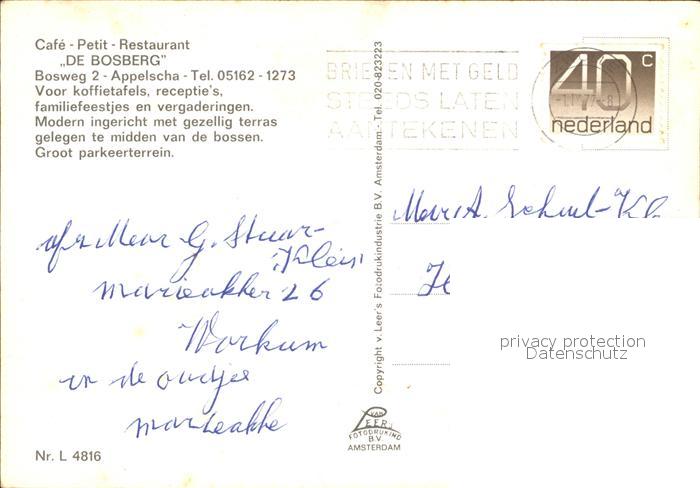 Café - Petit - Restaurant
„DE BOSBERG”
Bosweg 2 - Appelscha - Tel. 05162 - 1273
Voor koffietafels, receptie's,
familiefeestjes en vergaderingen.
Modern ingericht met gezellig terras
gelegen te midden van de bossen.
Groot parkeerterrein.
BRIEVEN MET GELD
STEEDS LATEN
AANTEKENEN
40 c
nederland
Copyright v. Leer's Fotodrukindustrie B.V. Amsterdam - Tel. 020-823223
afz Mevr G. Stuur-
Kleis
marieakker 26
Workum
in de
Mevr A.
privacy protection
Datenschutz
VAN
LEER's
FOTODRUKIND
B.V.
AMSTERDAM
Nr. L 4816